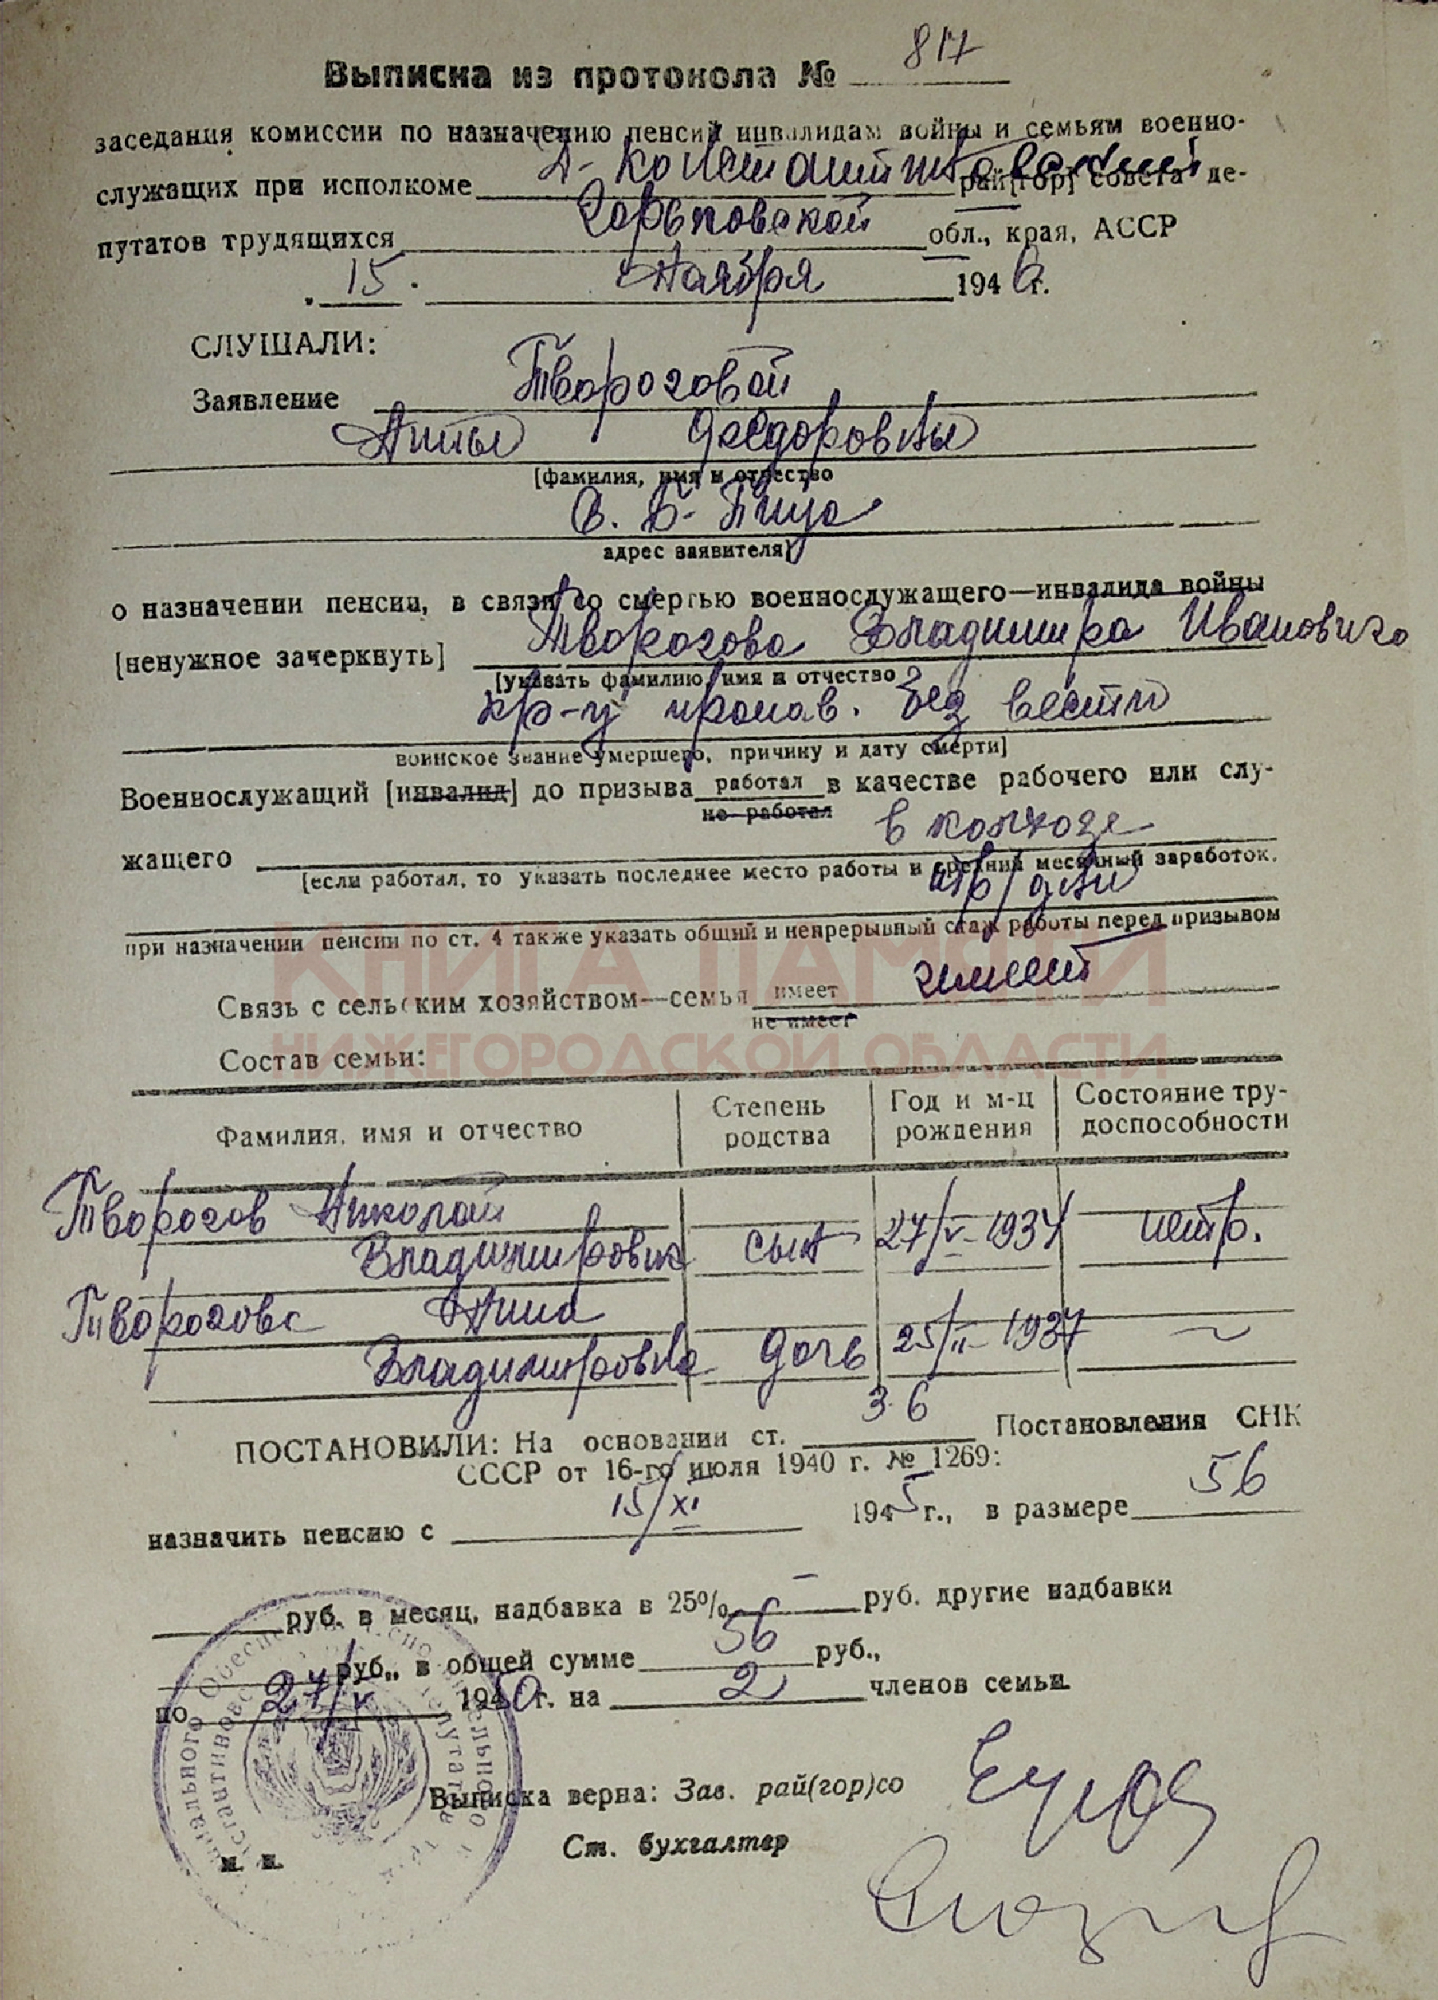 Выписка из протокола № 817
заседания комиссии по назначению пенсий инвалидам войны и семьям военно-
служащих при исполкоме Д-Константиновский рай[гор] совета де-
путатов трудящихся Горьковской обл., края, АССР
15. Ноября 1946 г.
СЛУШАЛИ:
Заявление Твороговой
Анны Федоровны
[фамилия, имя и отчество
С. Б-Пица
адрес заявителя]
о назначении пенсии, в связи со смертью военнослужащего—инвалида войны
[ненужное зачеркнуть] Творогова Владимира Ивановича
[указать фамилию, имя и отчество
кр-ц пропав. без вести
воинское звание умершего, причину и дату смерти]
Военнослужащий [инвалид] до призыва работал в качестве рабочего или слу-
не работал
жащего в колхозе
[если работал, то указать последнее место работы и средний месячный заработок,
тр/дни
при назначении пенсии по ст. 4 также указать общий и непрерывный стаж работы перед призывом
КНИГА ПАМЯТИ
Связь с сельским хозяйством—семья имеет имеет
не имеет
НИЖЕГОРОДСКОЙ ОБЛАСТИ
Состав семьи:
Фамилия, имя и отчество Степень родства Год и м-ц рождения Состояние тру-доспособности
Творогов Николай
Владимирович сын 27/V-1934 нетр.
Творогова Нина
Владимировна дочь 25/II-1937 ~
ПОСТАНОВИЛИ: На основании ст. 3 6 Постановления СНК
СССР от 16-го июля 1940 г. № 1269:
назначить пенсию с 15/XI 1945 г., в размере 56
руб. в месяц, надбавка в 25% – руб. другие надбавки
руб., в общей сумме 56 руб.,
по 27/V 1950 г. на 2 членов семьи.
Выписка верна: Зав. рай(гор)со
Ст. бухгалтер
м. п.